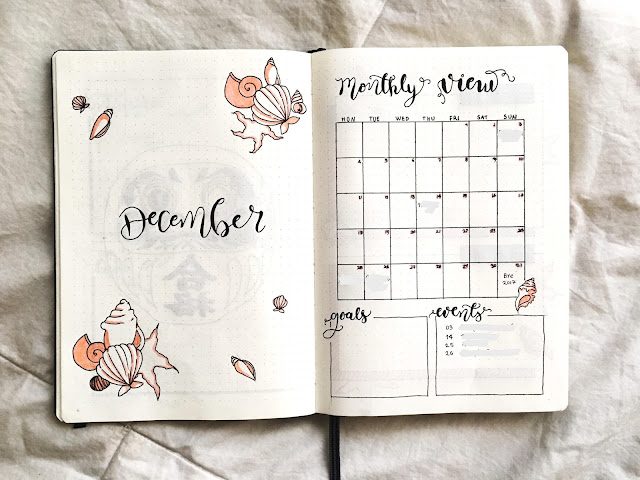 December
Monthly view
MON TUE WED THU FRI SAT SUN
1 2 3
4 5 6 7 8 9 10
11 12 13 14 15 16 17
18 19 20 21 22 23 24
25 26 27 28 29 30 31
Bye
2017
goals
events
03
14
25
26